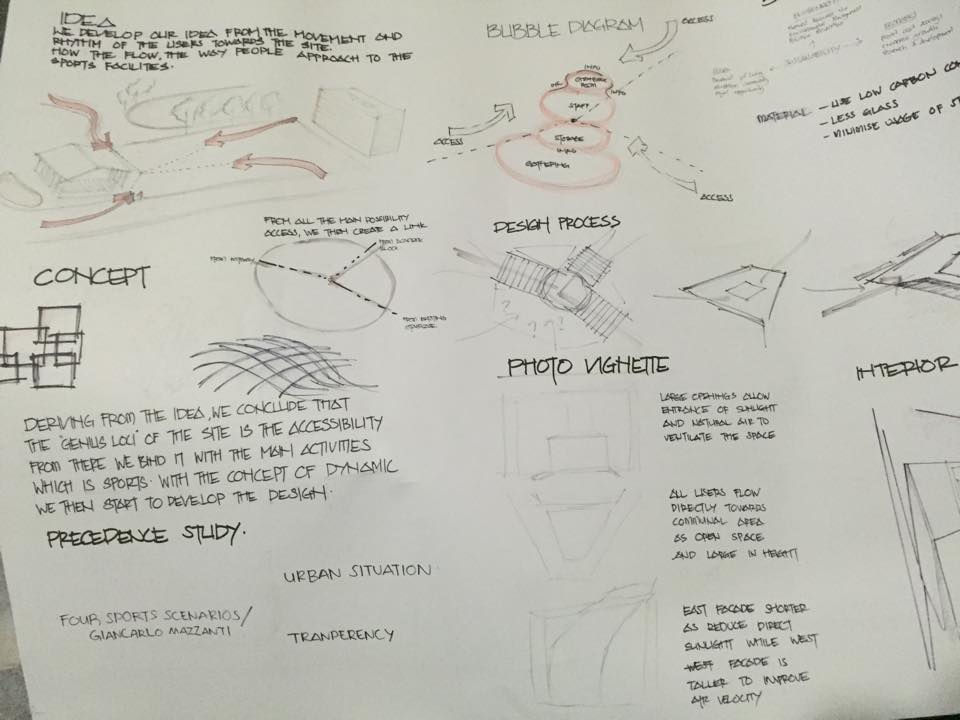 IDEA
WE DEVELOP OUR IDEA FROM THE MOVEMENT AND
RHYTHM OF THE USERS TOWARDS THE SITE.
HOW THE FLOW, THE WAY PEOPLE APPROACH TO THE
SPORTS FACILITIES.
BUBBLE DIAGRAM
ACCESS
INFO
INFO
START
STORAGE
GATHERING
ACCESS
ACCESS
SUSTAINABILITY
MATERIAL
- USE LOW CARBON
- LESS GLASS
- MINIMISE USAGE OF
FROM ALL THE MAIN POSSIBILITY
ACCESS, WE THEN CREATE A LINK
DESIGN PROCESS
CONCEPT
DERIVING FROM THE IDEA, WE CONCLUDE THAT
THE 'GENIUS LOCI' OF THE SITE IS THE ACCESSIBILITY
FROM THERE WE BIND IT WITH THE MAIN ACTIVITIES
WHICH IS SPORTS. WITH THE CONCEPT OF DYNAMIC
WE THEN START TO DEVELOP THE DESIGN.
PHOTO VIGNETTE
INTERIOR
LARGE OPENINGS ALLOW
ENTRANCE OF SUNLIGHT
AND NATURAL AIR TO
VENTILATE THE SPACE
ALL USERS FLOW
DIRECTLY TOWARDS
COMMUNAL AREA
AS OPEN SPACE
AND LARGE IN HEIGHT
EAST FACADE SHORTER
AS REDUCE DIRECT
SUNLIGHT WHILE WEST
WEST FACADE IS
TALLER TO IMPROVE
AIR VELOCITY
PRECEDENCE STUDY.
URBAN SITUATION
FOUR SPORTS SCENARIOS/
GIANCARLO MAZZANTI
TRANPERENCY